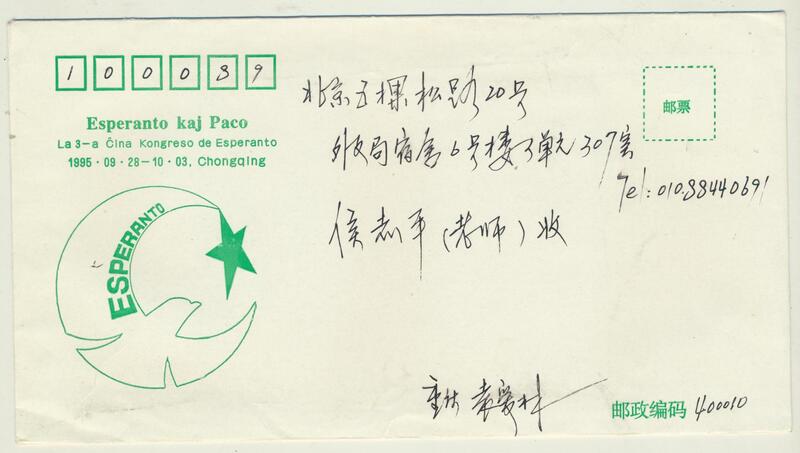 100039
Esperanto kaj Paco
La 3-a Ĉina Kongreso de Esperanto
1995・09・28-10・03, Chongqing
ESPERANTO
邮票
北京五棵松路20号
外文局宿舍6号楼3单元307室
Tel: 010.88440691
侯志平(老师)收
重庆
邮政编码 400010